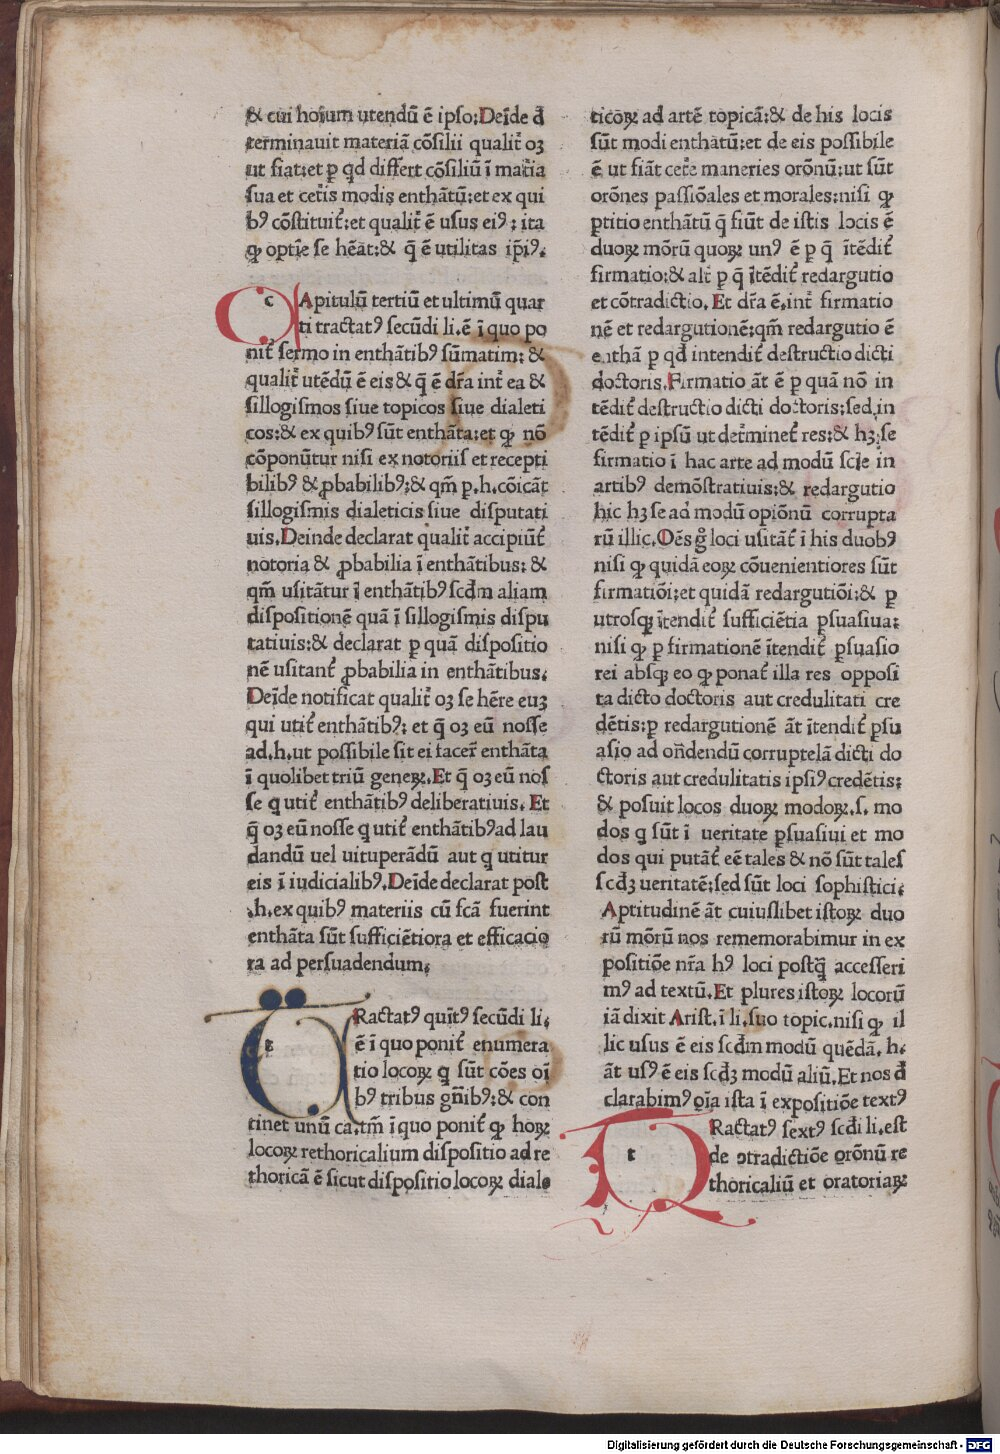 & cui hoꝝum utendũ ē ipſo:Deīde đ
terminauit materiã cõſilii qualit̃ oꝫ
ut fiat:et ꝑ qđ differt cõſiliũ ĩ mat̃ia
ſua et cet̃is modis enthãtũ:et ex qui
bꝰ cõſtituit̃:et qualit̃ ē uſus eiꝰ: ita
ꝙ optīe ſe hēat:& q̄ ē utilitas ip̄iꝰ.
c Apitulũ tertiũ et ultimũ quar
ti tractatꝰ ſecũdi li.ē ĩ quo po
nit̃ ſermo in enthãtibꝰ ſũmatim: &
qualit̃ utēdũ ē eis & q̄ ē dr̃a int̃ ea &
ſillogiſmos ſiue topicos ſiue dialeti
cos:& ex quibꝰ ſũt enthãta:et ꝙ nõ
cõponũtur niſi ex notoriiſ et recepti
bilibꝰ & ꝓbabilibꝰ:& qm̃ ꝑ.h.cõicãt
ſillogiſmis dialeticis ſiue diſputati
uis.Deinde declarat qualit̃ accipiũt̃
notoria & ꝓbabilia ĩ enthãtibus: &
qm̃ uſitãtur ĩ enthãtibꝰ ſcđm aliam
diſpoſitionē quã ĩ ſillogiſmis diſpu
tatiuis:& declarat ꝑ quã diſpoſitio
nē uſitant̃ ꝓbabilia in enthãtibus.
Deīde notificat qualit̃ oꝫ ſe hēre euꝫ
qui utit̃ enthãtibꝰ: et q̄ oꝫ eũ noſſe
ad.h.ut poſſibile ſit ei facer̃ enthãta
ĩ quolibet triũ geneꝝ.Et q̄ oꝫ eũ noſ
ſe q utit̃ enthãtibꝰ deliberatiuis. Et
q̄ oꝫ eũ noſſe q utit̃ enthãtibꝰad lau
dandũ uel uituperãdũ aut q utitur
eis ĩ iudicialibꝰ.Deīde declarat poſt
.h.ex quibꝰ materiis cũ fcã fuerint
enthãta ſũt ſufficiētiora et efficacio
ra ad perſuadendum.
t Ractatꝰ quĩtꝰ ſecũdi li.
ē ĩ quo ponit̃ enumera
tio locoꝝ q ſũt cões oĩ
bꝰ tribus gñibꝰ:& con
tinet unũ ca.tm̃ ĩ quo ponit̃ ꝙ hoꝝ
locoꝝ rethoricalium diſpoſitio ad re
thoricã ē ſicut diſpoſitio locoꝝ diale
ticoꝝ ad artē topicã:& de his locis
ſũt modi enthãtũ:et de eis poſſibile
ē ut fiãt cet̃e maneries orõnũ:ut ſũt
orõnes paſſiõales et morales:niſi ꝙ
ꝑtitio enthãtũ q̄ fiũt de iſtis locis ē
duoꝝ mõrũ quoꝝ unꝰ ē ꝑ q̄ ĩtēdit̃
firmatio:& alt̃ ꝑ q̄ ĩtēdit̃ redargutio
et cõtradictio. Et dr̃a ē.int̃ firmatio
nē et redargutionē:qm̃ redargutio ē
enthã ꝑ qđ intendit̃ deſtructio dicti
doctoris.Firmatio ãt ē ꝑ quã nõ in
tēdit̃ deſtructio dicti doctoris:ſed in
tēdit̃ ꝑ ipſũ ut det̃minet̃ res:& hꝫ ſe
firmatio ĩ hac arte ad modũ ſcīe in
artibꝰ demõſtratiuis:& redargutio
hic hꝫ ſe ad modũ opiõnũ corrupta
rũ illic.Oēs g̊ loci uſitãt̃ ĩ his duobꝰ
niſi ꝙ quidã eoꝝ cõuenientiores ſũt
firmatiõi:et quidã redargutiõi:& ꝑ
utroſqꝫ ĩtendit̃ ſufficiētia ꝑſuaſiua:
niſi ꝙ ꝑ firmationē ĩtendit̃ ꝑſuaſio
rei abſqꝫ eo ꝙ ponat̃ illa res oppoſi
ta dicto doctoris aut credulitati cre
dētis:ꝑ redargutionē ãt ĩtendit̃ ꝑſu
aſio ad oñdendũ corruptelã dicti do
ctoris aut credulitatis ipſiꝰcredētis:
& poſuit locos duoꝝ modoꝝ.ſ. mo
dos q ſũt ĩ ueritate ꝑſuaſiui et mo
dos qui putãt̃ eē tales & nõ ſũt taleſ
ſcđꝫ ueritatē:ſed ſũt loci ſophiſtici.
Aptitudinē ãt cuiuſlibet iſtoꝝ duo
rũ mõrũ nos rememorabimur in ex
poſitiõe nr̃a hꝰ loci poſtq̃ acceſſeri
mꝰ ad textũ.Et plures iſtoꝝ locorũ
iã dixit Ariſt.ĩ li.ſuo topic.niſi ꝙ il
lic uſus ē eis ſcđm modũ quēdã. h.
ãt uſꝰ ē eis ſcđꝫ modũ aliũ.Et nos đ
clarabimꝰ oĩa iſta ĩ expoſitiõe textꝰ
t Ractatꝰ ſextꝰ ſcđi li.eſt
de ɔtradictiõe orõnũ re
thoricaliũ et oratoriaꝝ
Digitalisierung gefördert durch die Deutsche Forschungsgemeinschaft - DFG